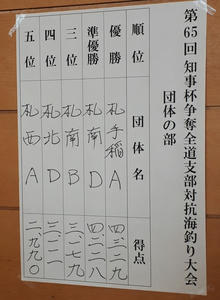 第65回 知事杯争奪全道支部対抗海釣り大会
団体の部
順位 団体名 得点
優勝 札手稲 A 四、三二九
準優勝 札南 D 四、二二八
三位 札南 B 三、一七九
四位 札北 D
五位 札西 A 二、九九〇